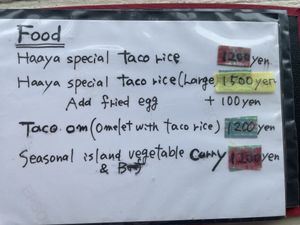 Food
Haaya special taco rice 1200 yen
Haaya special taco rice (Large) 1500 yen
Add fried egg + 100 yen
Taco om (Omelet with taco rice) 1200 yen
Seasonal island vegetable curry 1200 yen
&